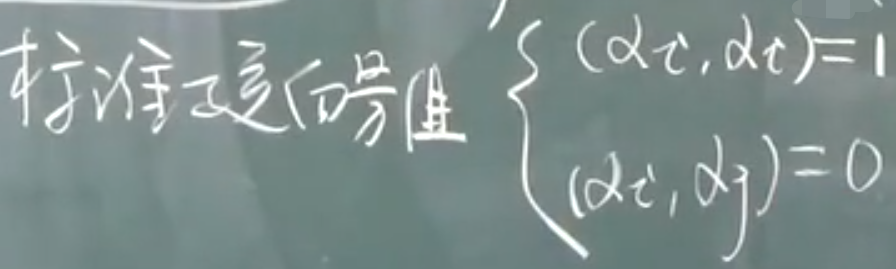 标准正交向量组
(αi, αi)=1
(αi, αj)=0